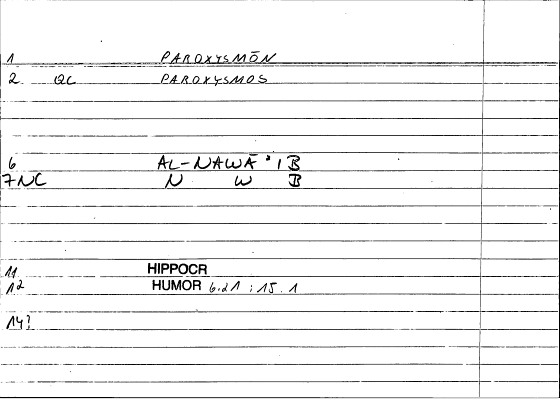 1 PAROXYSMŌN
2 QC PAROXYSMOS
6 AL-NAWĀ'IB
7 NC N W B
11 HIPPOCR
12 HUMOR 6.21 : 15.1
14?